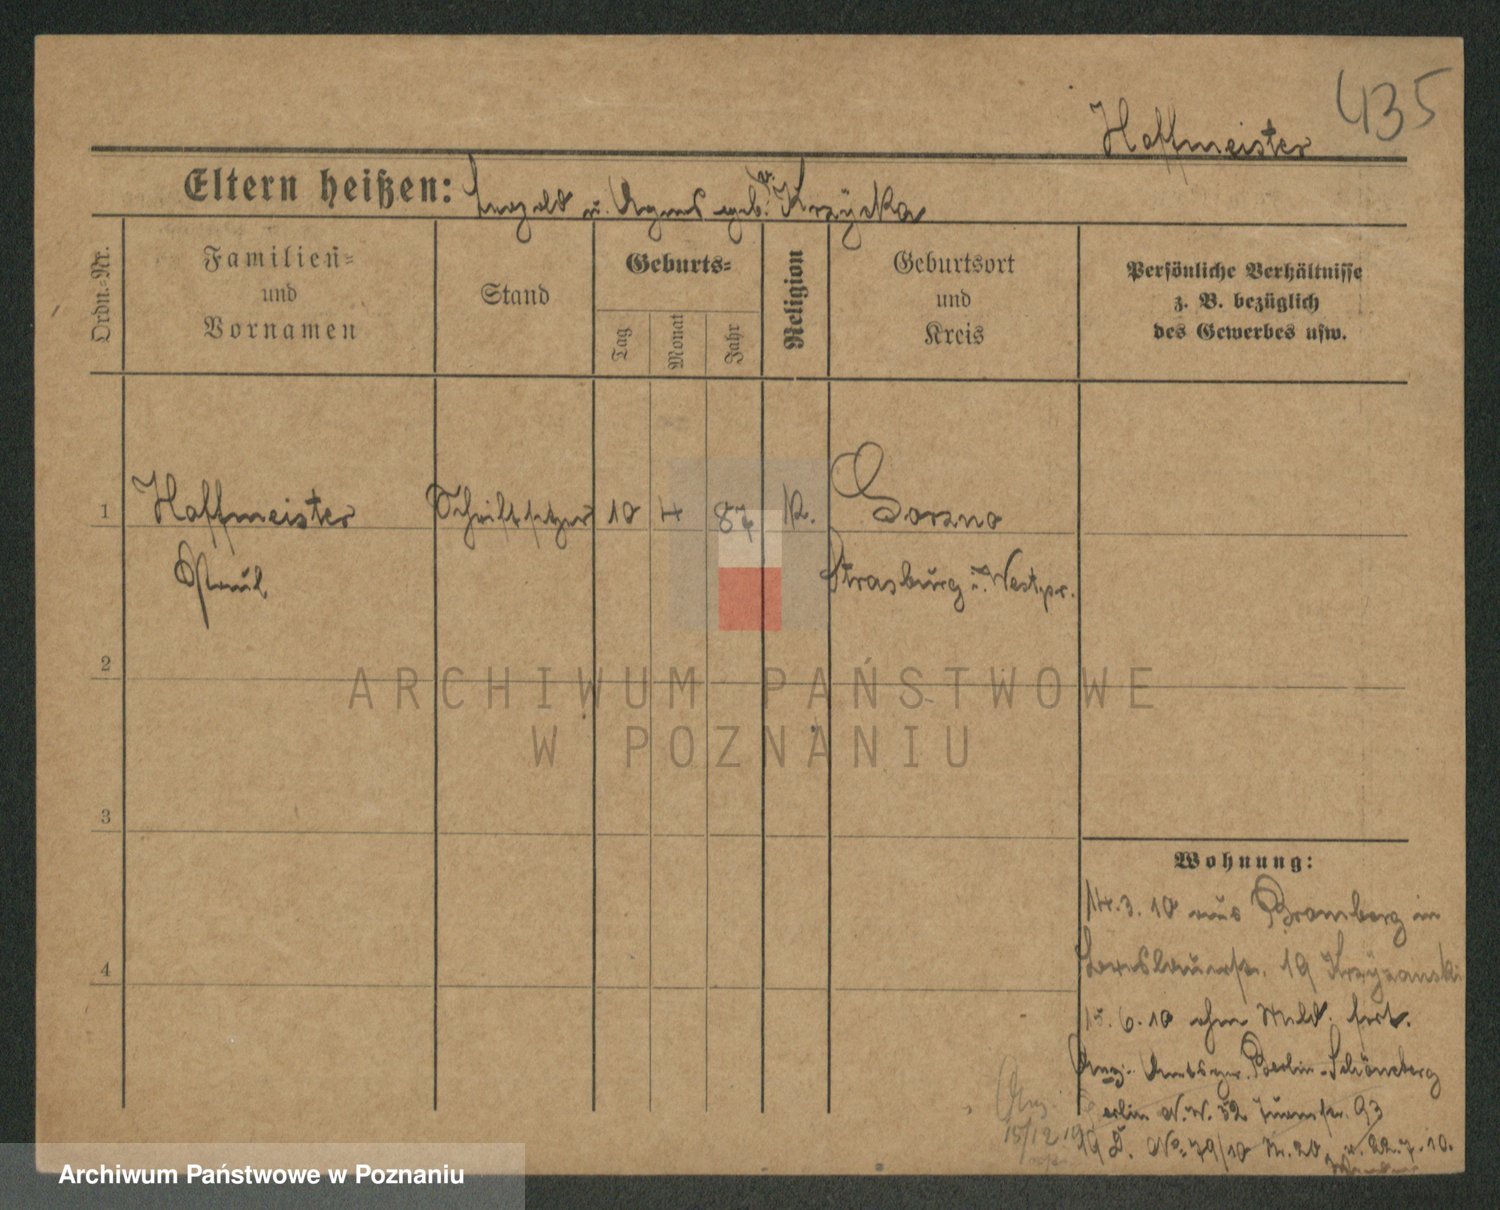 435
Hoffmeister
Eltern heißen: Leopold u. Agnes geb. v. Krzycka
Ordn.-Nr.
Familien-
und
Vornamen
Stand
Geburts-
Tag
Monat
Jahr
Religion
Geburtsort
und
Kreis
Persönliche Verhältnisse
z. B. bezüglich
des Gewerbes usw.
1 Hoffmeister Schriftsetzer 10 4 87 K. Gorzno
Paul Strasburg i. Westpr.
2
ARCHIWUM PAŃSTWOWE
W POZNANIU
3
4
Wohnung:
14.3.10 aus Bromberg in
19 Krzyzanski
15.6.10 ohne Meld. fort.
Anz. Amtsger. Berlin-Schöneberg
Berlin N.W. 52 Turmstr. 93
19 D. No 79/10 v. 22.7.10.
15/12 19
Archiwum Państwowe w Poznaniu